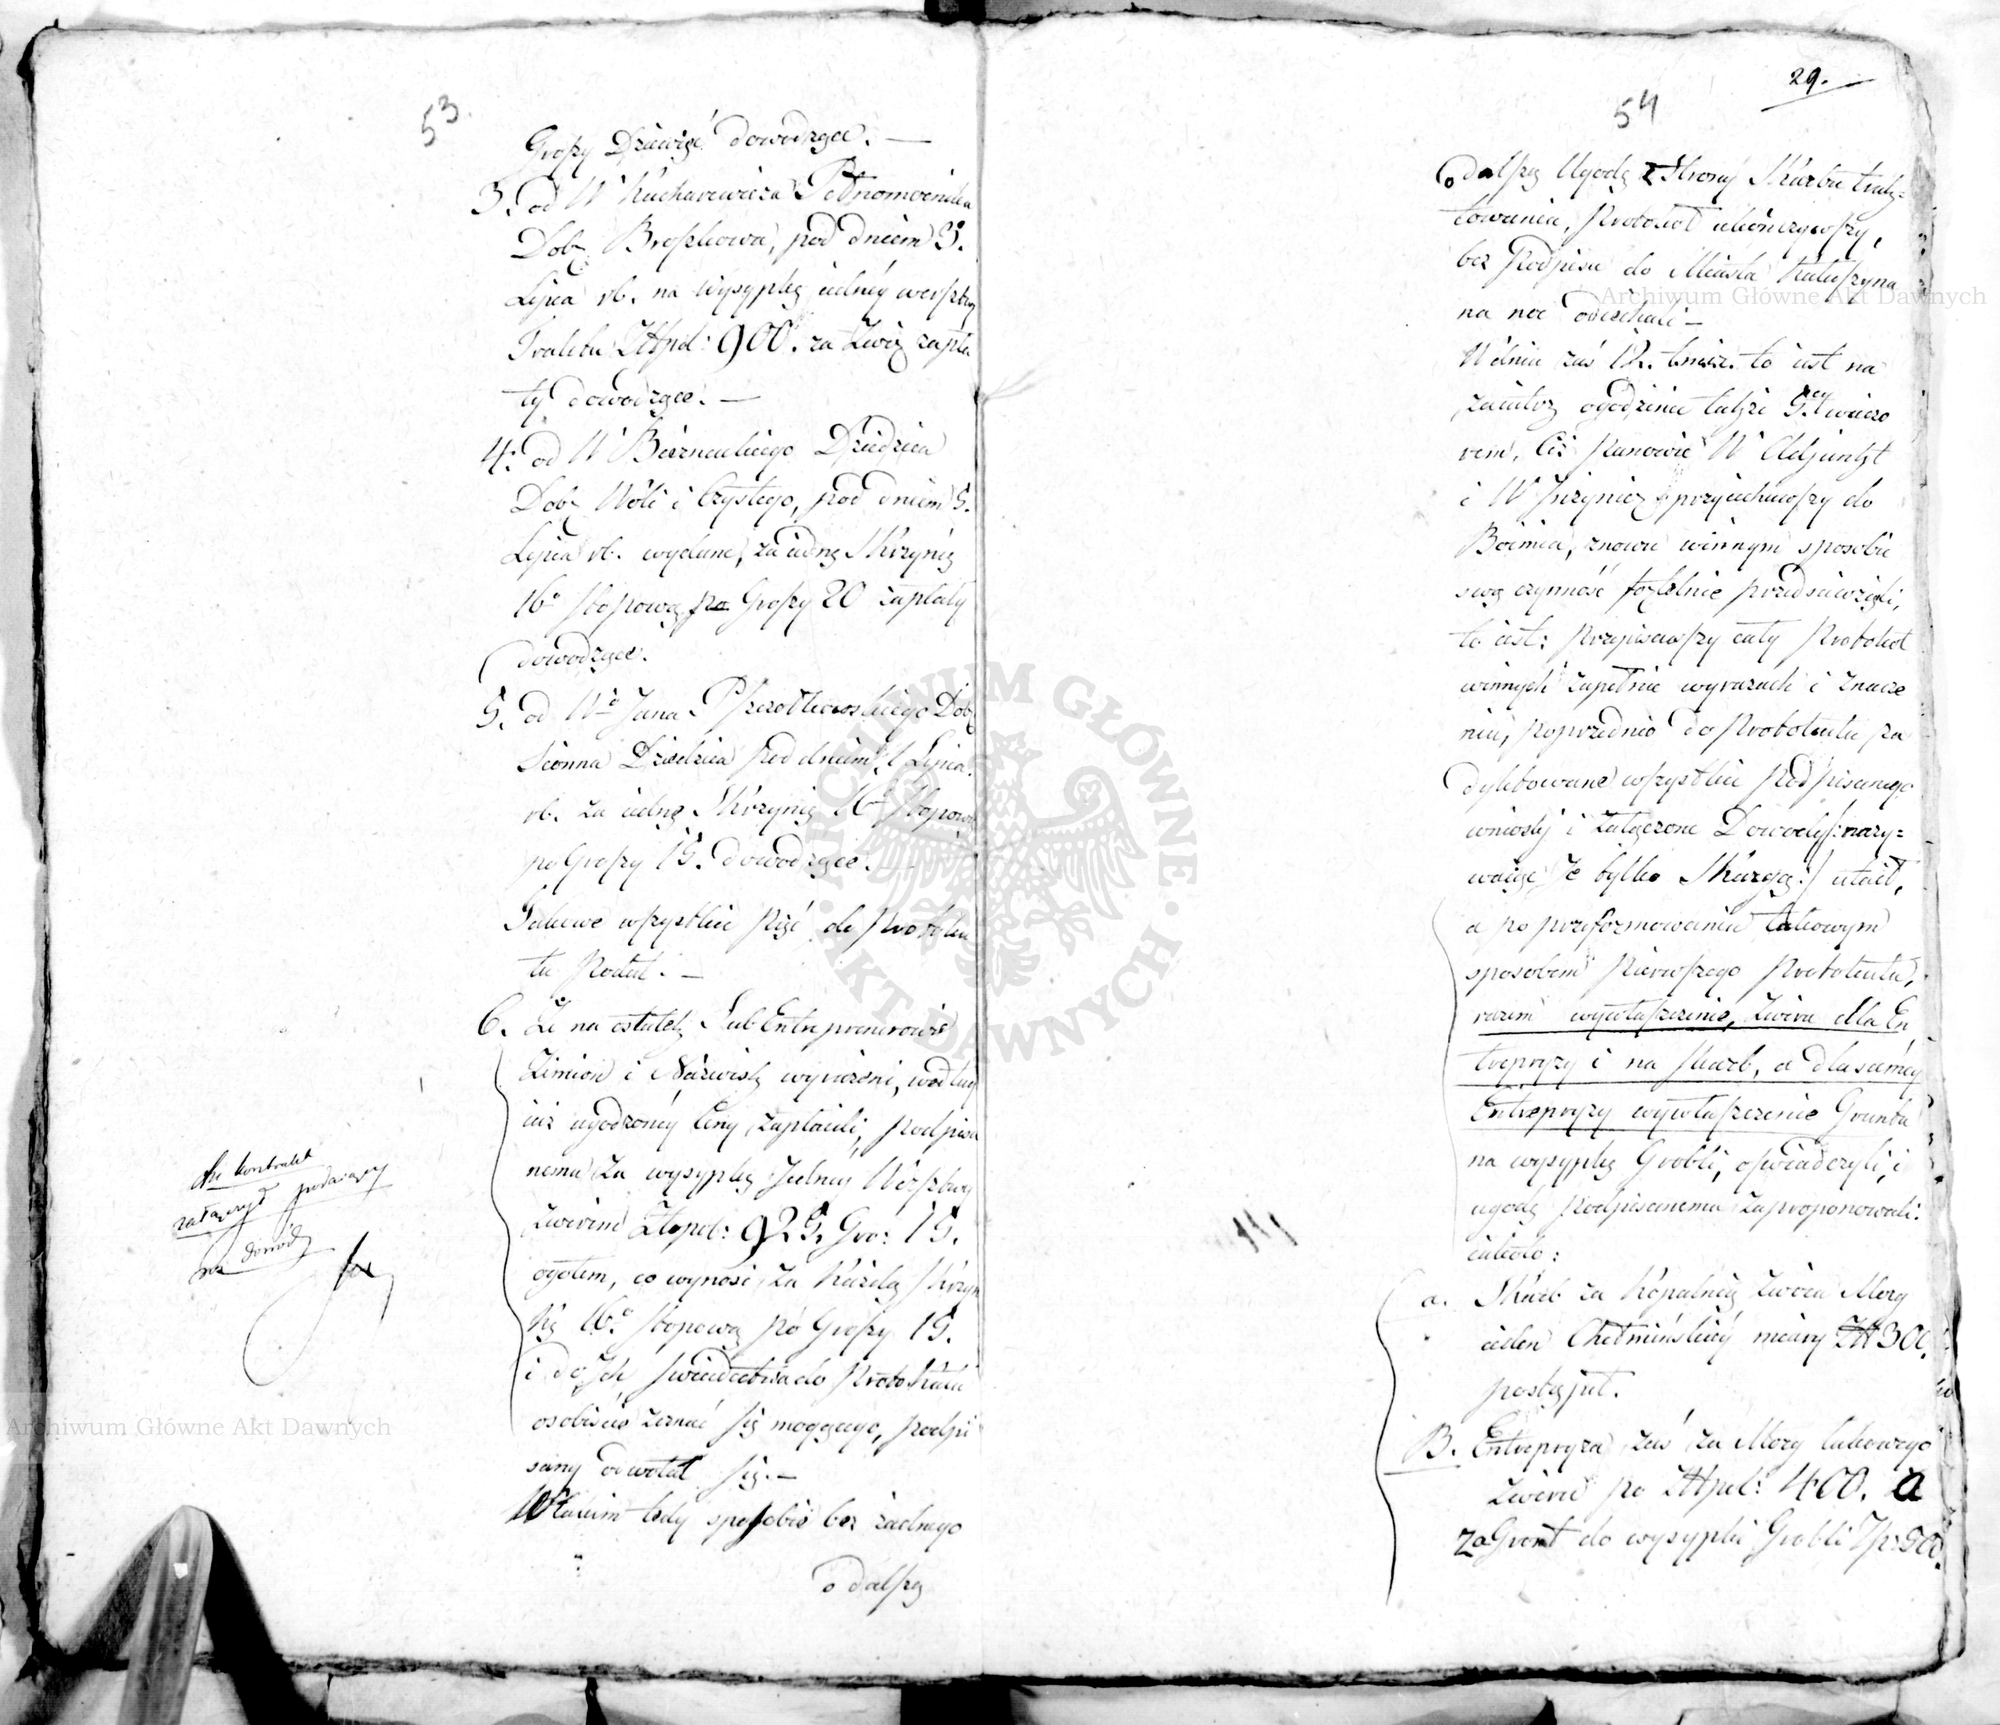 53
Groszy Dziewięć dowodzące. —
3. od W Kucharewicza Pełnomocnika
Dobr Broszkowa, pod dniem 3.
Lipca rb. na wysypkę iednéy werszty
Traktu Złtpol: 900. za Zwir zapła
ty dowodzące. —
4. od W Biernackiego Dziedzica
Dobr Woli i Czystego, pod dniem 5.
Lipca rb. wydane, za iedną Skrzynię
16o stopową po Groszy 20 zapłaty
dowodzące.
5. od Wo Jana Dobr
Sionna Dziedzica pod dniem Lipca
rb. za iedną Skrzynię 16o stopową
po Groszy 15. dowodzące. —
Takowe wszystkie pięć do Protoku
łu podał. —
6. Że na ostatek SubEntreprenerowie
Zimion i Nazwisk wyrażeni, według
iuż ugodzonéy Ceny zapłacili, podpisa
nemu za wysypkę Jednéy Werszty
zwirem Złopol: 925. Gro: 15.
ogołem, co wynosi za każdą Skrzyn
kę 16o stopową po Groszy 15.
i do Jch świadectwa do Protokułu
osobiście zeznać się mogącego, podpi
sany odwołał się. —
W takim tedy sposobie bez żadnego
o dalszą
Na kontrakt
załączył podaiący
na dowód
29.
54
o dalszą Ugodę z Strony Skarbu trak=
towania, Protokół ukończywszy,
bez Podpisu do Miasta Kałuszyna
na noc odiechali —
W dniu zaś 12. t. to iest na
zaiutrz o godzinie także 5tey wieczo
rem, Ciż Panowie W Adjunkt
i W Inżynier przyiechawszy do
Boimia, znowu w innym sposobie
swą czynność przedsiewzięli,
to iest: Przepisawszy cały Protokuł
w innych zupełnie wyrazach i znacze
niu, poprzednio do Protokułu po
dyktowane wszystkie podpisanego
wniosky i załączone Dowody /: nazy=
waiąc Je tylko Skargą :/ utaił,
a po przeformowaniu takowym
sposobem pierwszego Protokułu,
razem wywłaszczenie, Zwiru dla En
trepryzy i na skarb, a dla saméy
Entrepryzy wywłaszczenie Gruntu
na wysypkę Grobli, oświadczyli, i
ugodę podpisanemu zaproponowali.
iakoto:
a. Skarb za Kopalnię Zwiru Morg
ieden Chełmińskiéy miary Złt 300.
postąpił.
B. Entrepryza zaś za Morg takowego
Zwiru po Złtpol: 400. a
za Grunt do wysypki Grobli Zp: 500.
Archiwum Główne Akt Dawnych
Archiwum Główne Akt Dawnych
ARCHIWUM GŁÓWNE · AKT DAWNYCH ·